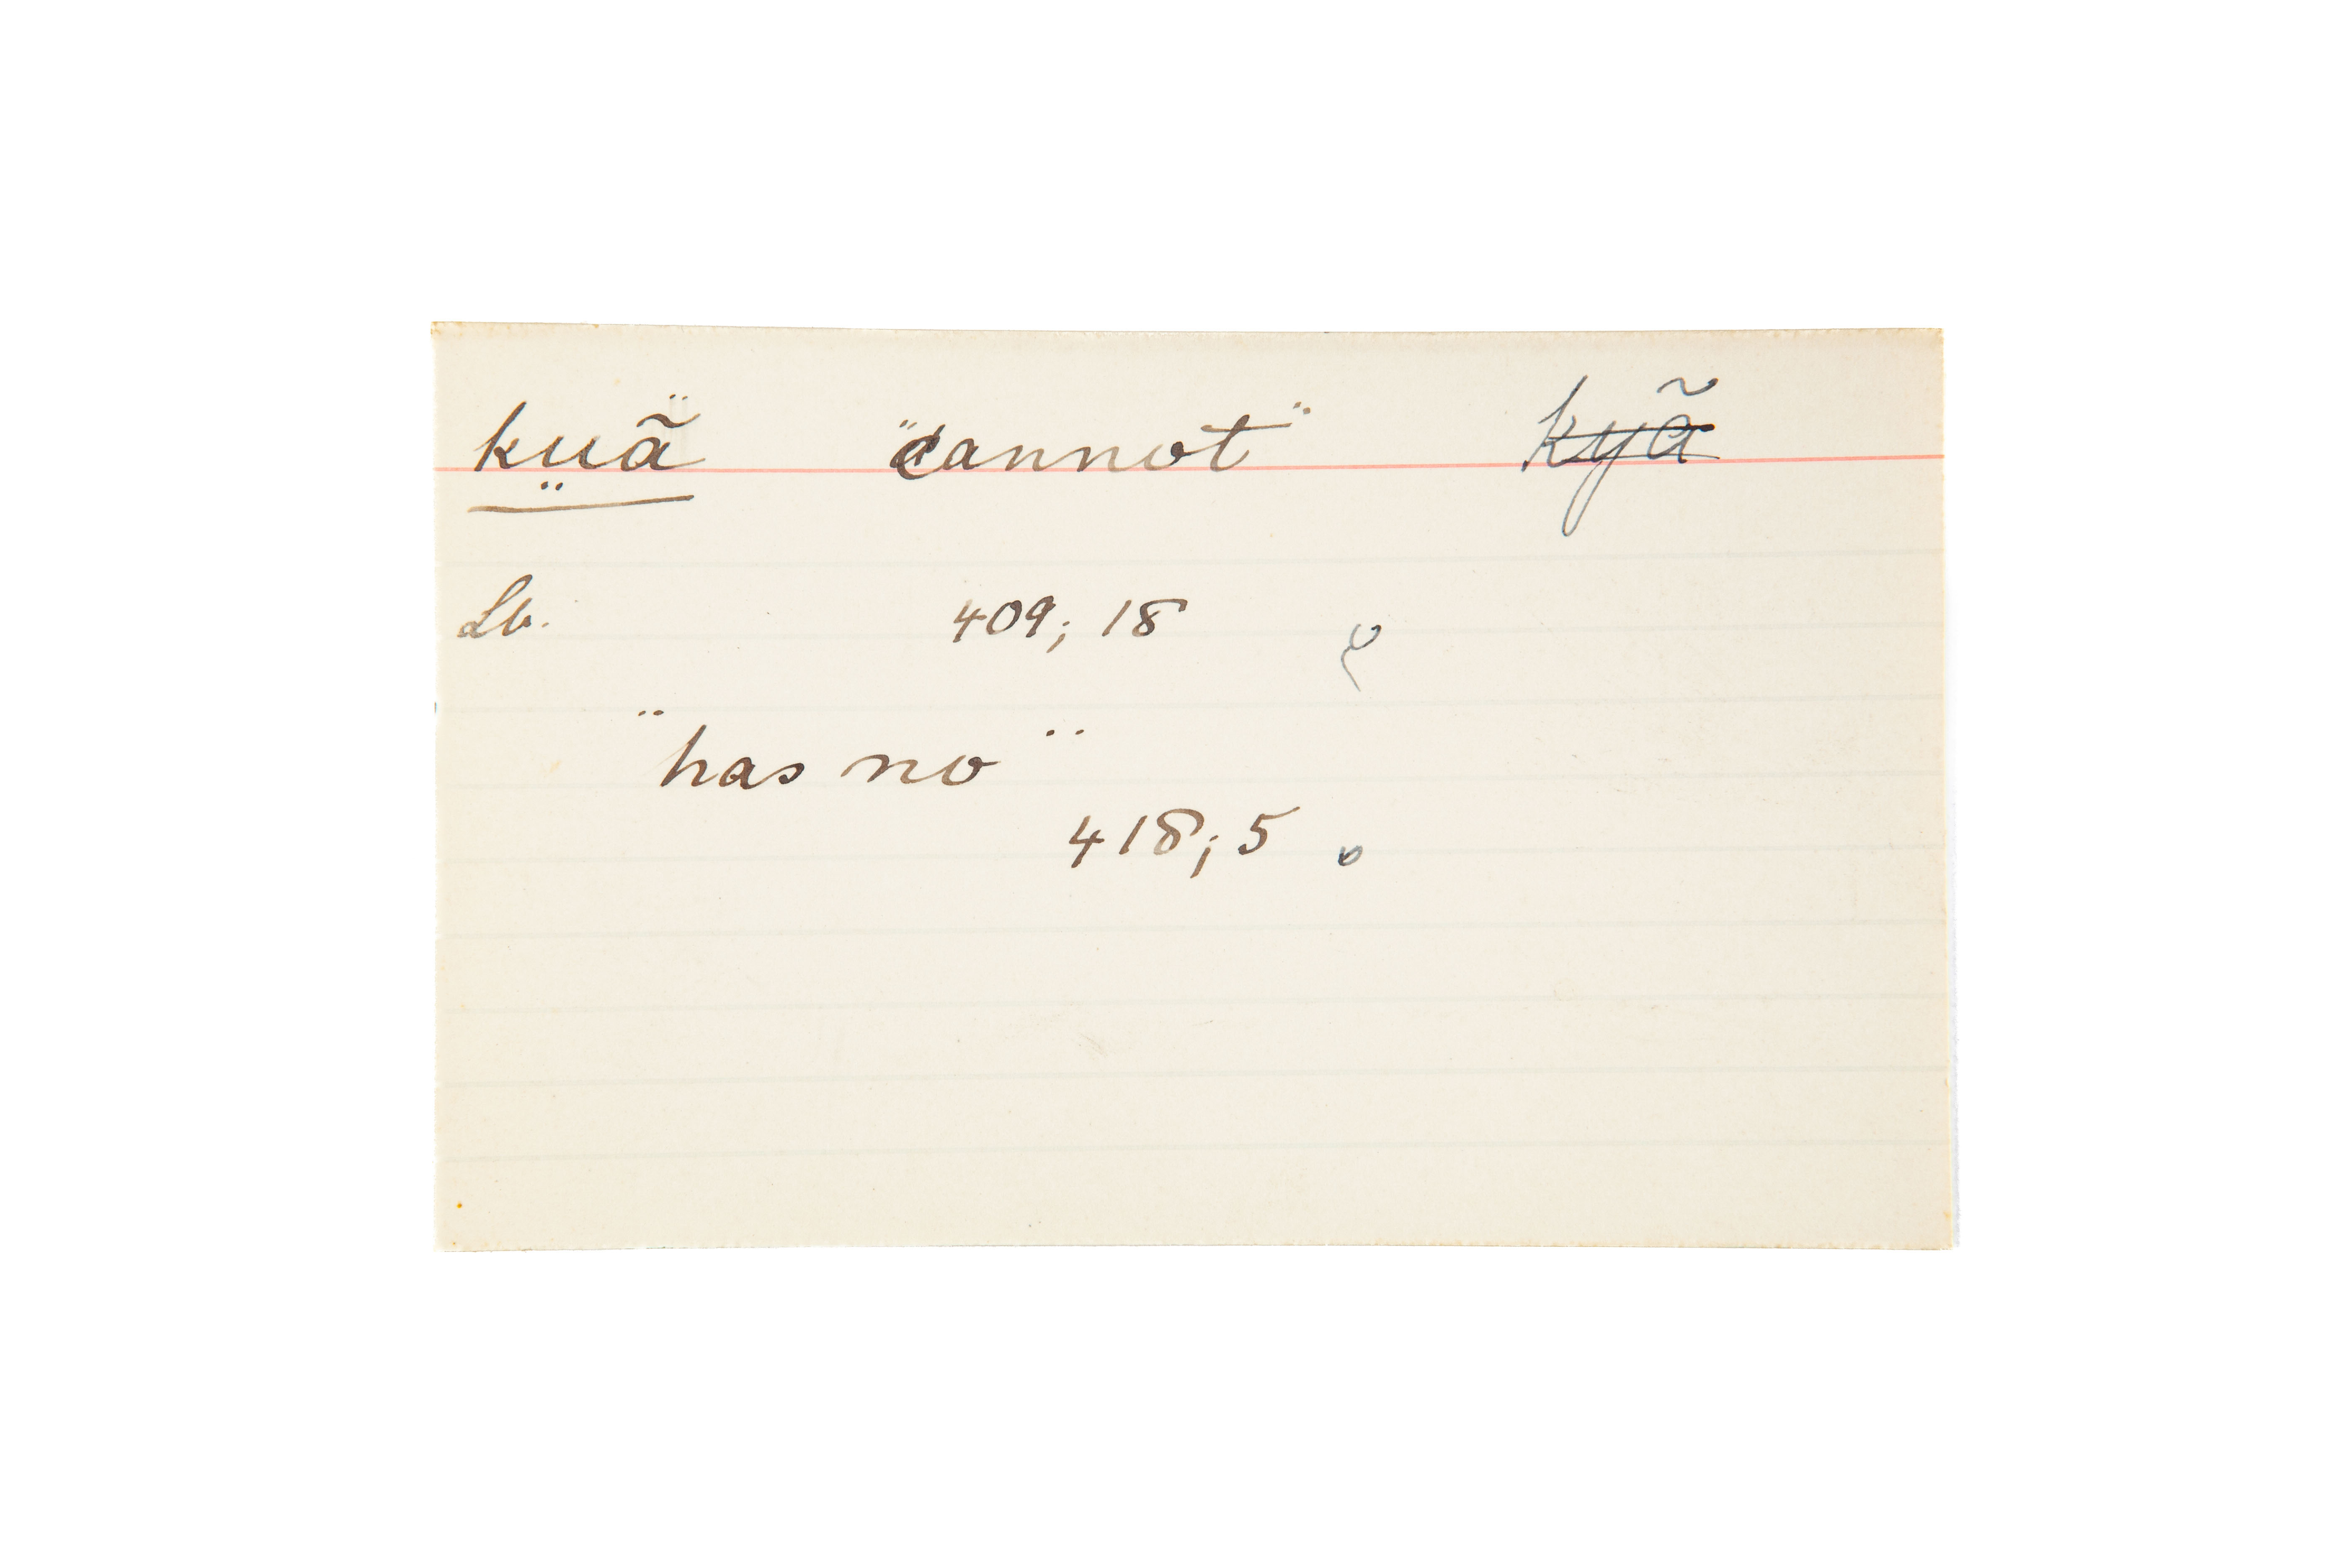 kṳã "cannot" kyã
Lb. 409; 18
"has no"
418; 5